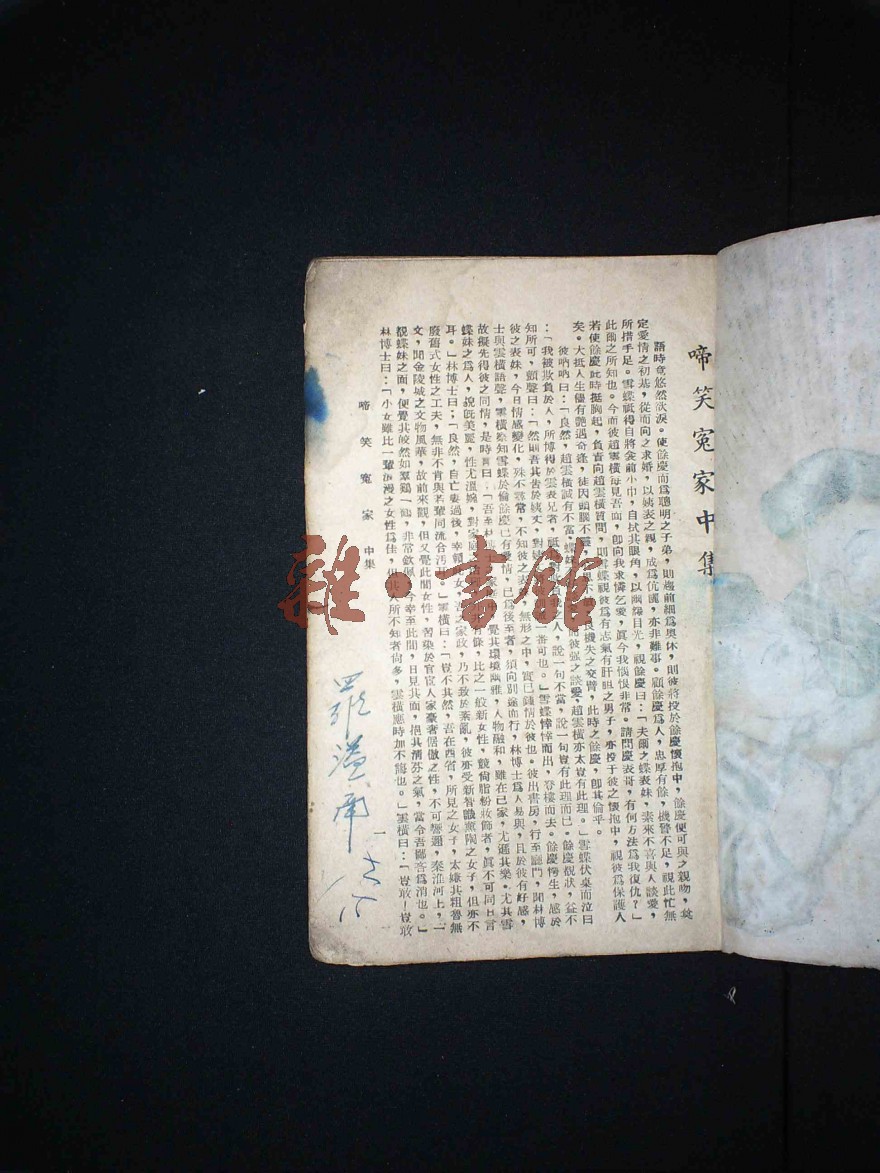 啼笑冤家中集
語時竟悠然欲淚。使餘慶而爲聰明之子弟，則趨前細爲奧休，則彼將投於餘慶懷抱中，餘慶便可與之親吻，
定愛情之初基，從而向之求婚，以姨表之親，成爲伉儷，亦非難事。顧餘慶爲人，忠厚有餘，機警不足，視此忙無
所措手足。雪蝶祗得自將衾前小巾，自拭其眼角，以幽怨目光，視餘慶曰：「夫爾之蝶表妹，素來不喜與人談愛，
此爾之所知也。今而彼趙雲橫每見吾面，卽向我求憐乞愛，眞今我惱恨非常。請問慶表哥，有何方法爲我復仇？」
若使餘慶此時挺胸起，負責向趙雲橫質問，則雪蝶視彼爲有志氣有肝胆之男子，亦投于彼之懷抱中，視彼爲保護人
矣。大抵人生儘有艷遇奇逢，徒因頭腦不 良機失之交臂，此時之餘慶，卽其倫乎。
彼吶吶曰：「良然，趙雲橫誠有不當， 而彼强之談愛，趙雲橫亦太豈有此理。」雪蝶伏桌而泣曰
：「我被欺負於人，所博得於雲表兄者， 人，說一句不當，說一句豈有此理而已。餘慶覩狀，益不
知所可，顫聲曰：「然則吾其告於姨丈，對 一番可也。」雪蝶悻悻而出，登樓而去。餘慶愕生，感於
彼之表妹，今日情感變化，殊不尋常，不知彼之表 無形之中，實已鍾情於彼也。彼出書房，行至廳門，聞林博
士與雲橫語聲，雲橫除知雪蝶於倫餘慶已有愛情，已爲後至者，須向別途而行，林博士爲人易與，且於彼有好感，
故擬先得彼之同情，是時 曰：「吾 覺其環境幽雅，人物融和，雖在己家，尤遜其樂。尤其雪
蝶妹之爲人，貌旣美麗，性尤溫婉，對家庭 有條，比之一般新女性，競尙脂粉妝飾者，眞不可同日言
耳。」林博士曰：「良然，自亡妻過後，幸賴此女， 之家政，乃不致於紊亂，彼亦受新智識薰陶之女子，但亦不
廢舊式女性之工夫，無非不肯與若輩同流合汚 。」雲橫曰：「豈不其然，吾在西省，所見之女子，太嫌其粗魯無
文，聞金陵城之文物風華，故前來觀，但又覺此間女性，習染於官宦人家豪奢倨傲之性，不可嚮邇，秦淮河上，一
覩蝶妹之面，便覺其皎然如羣鷄一鶴，非常欽佩，今幸至此間，日見其面，挹其淸芬之氣，當令吾鄙吝爲消也。」
林博士曰：「小女雖比一輩浪漫之女性爲佳，但其人所不知者尙多，雲橫應時加不悔也。」雲橫曰：「豈敢！豈敢
啼笑冤家 中集
一
雜·書館